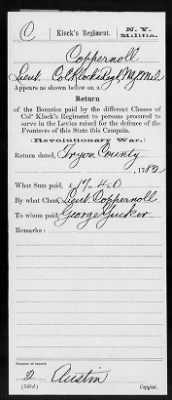 C Klock's Regiment. N. Y. Militia.
Coppernoll
Lieut. Col Klock's Regt N.Y. Mil
Appears as shown below on a
Return
of the Bounties paid by the different Classes of
Col' Klock's Regiment to persons procured to
serve in the Levies raised for the defence of the
Fronteers of this State this Campain.
(Revolutionary War.)
Return dated, Tryon County
, 1782
What Sum paid,
By what Class, Lieut. Coppernoll
To whom paid, George Zucker
Remarks:
Number of record:
2 Austin
Copyist.